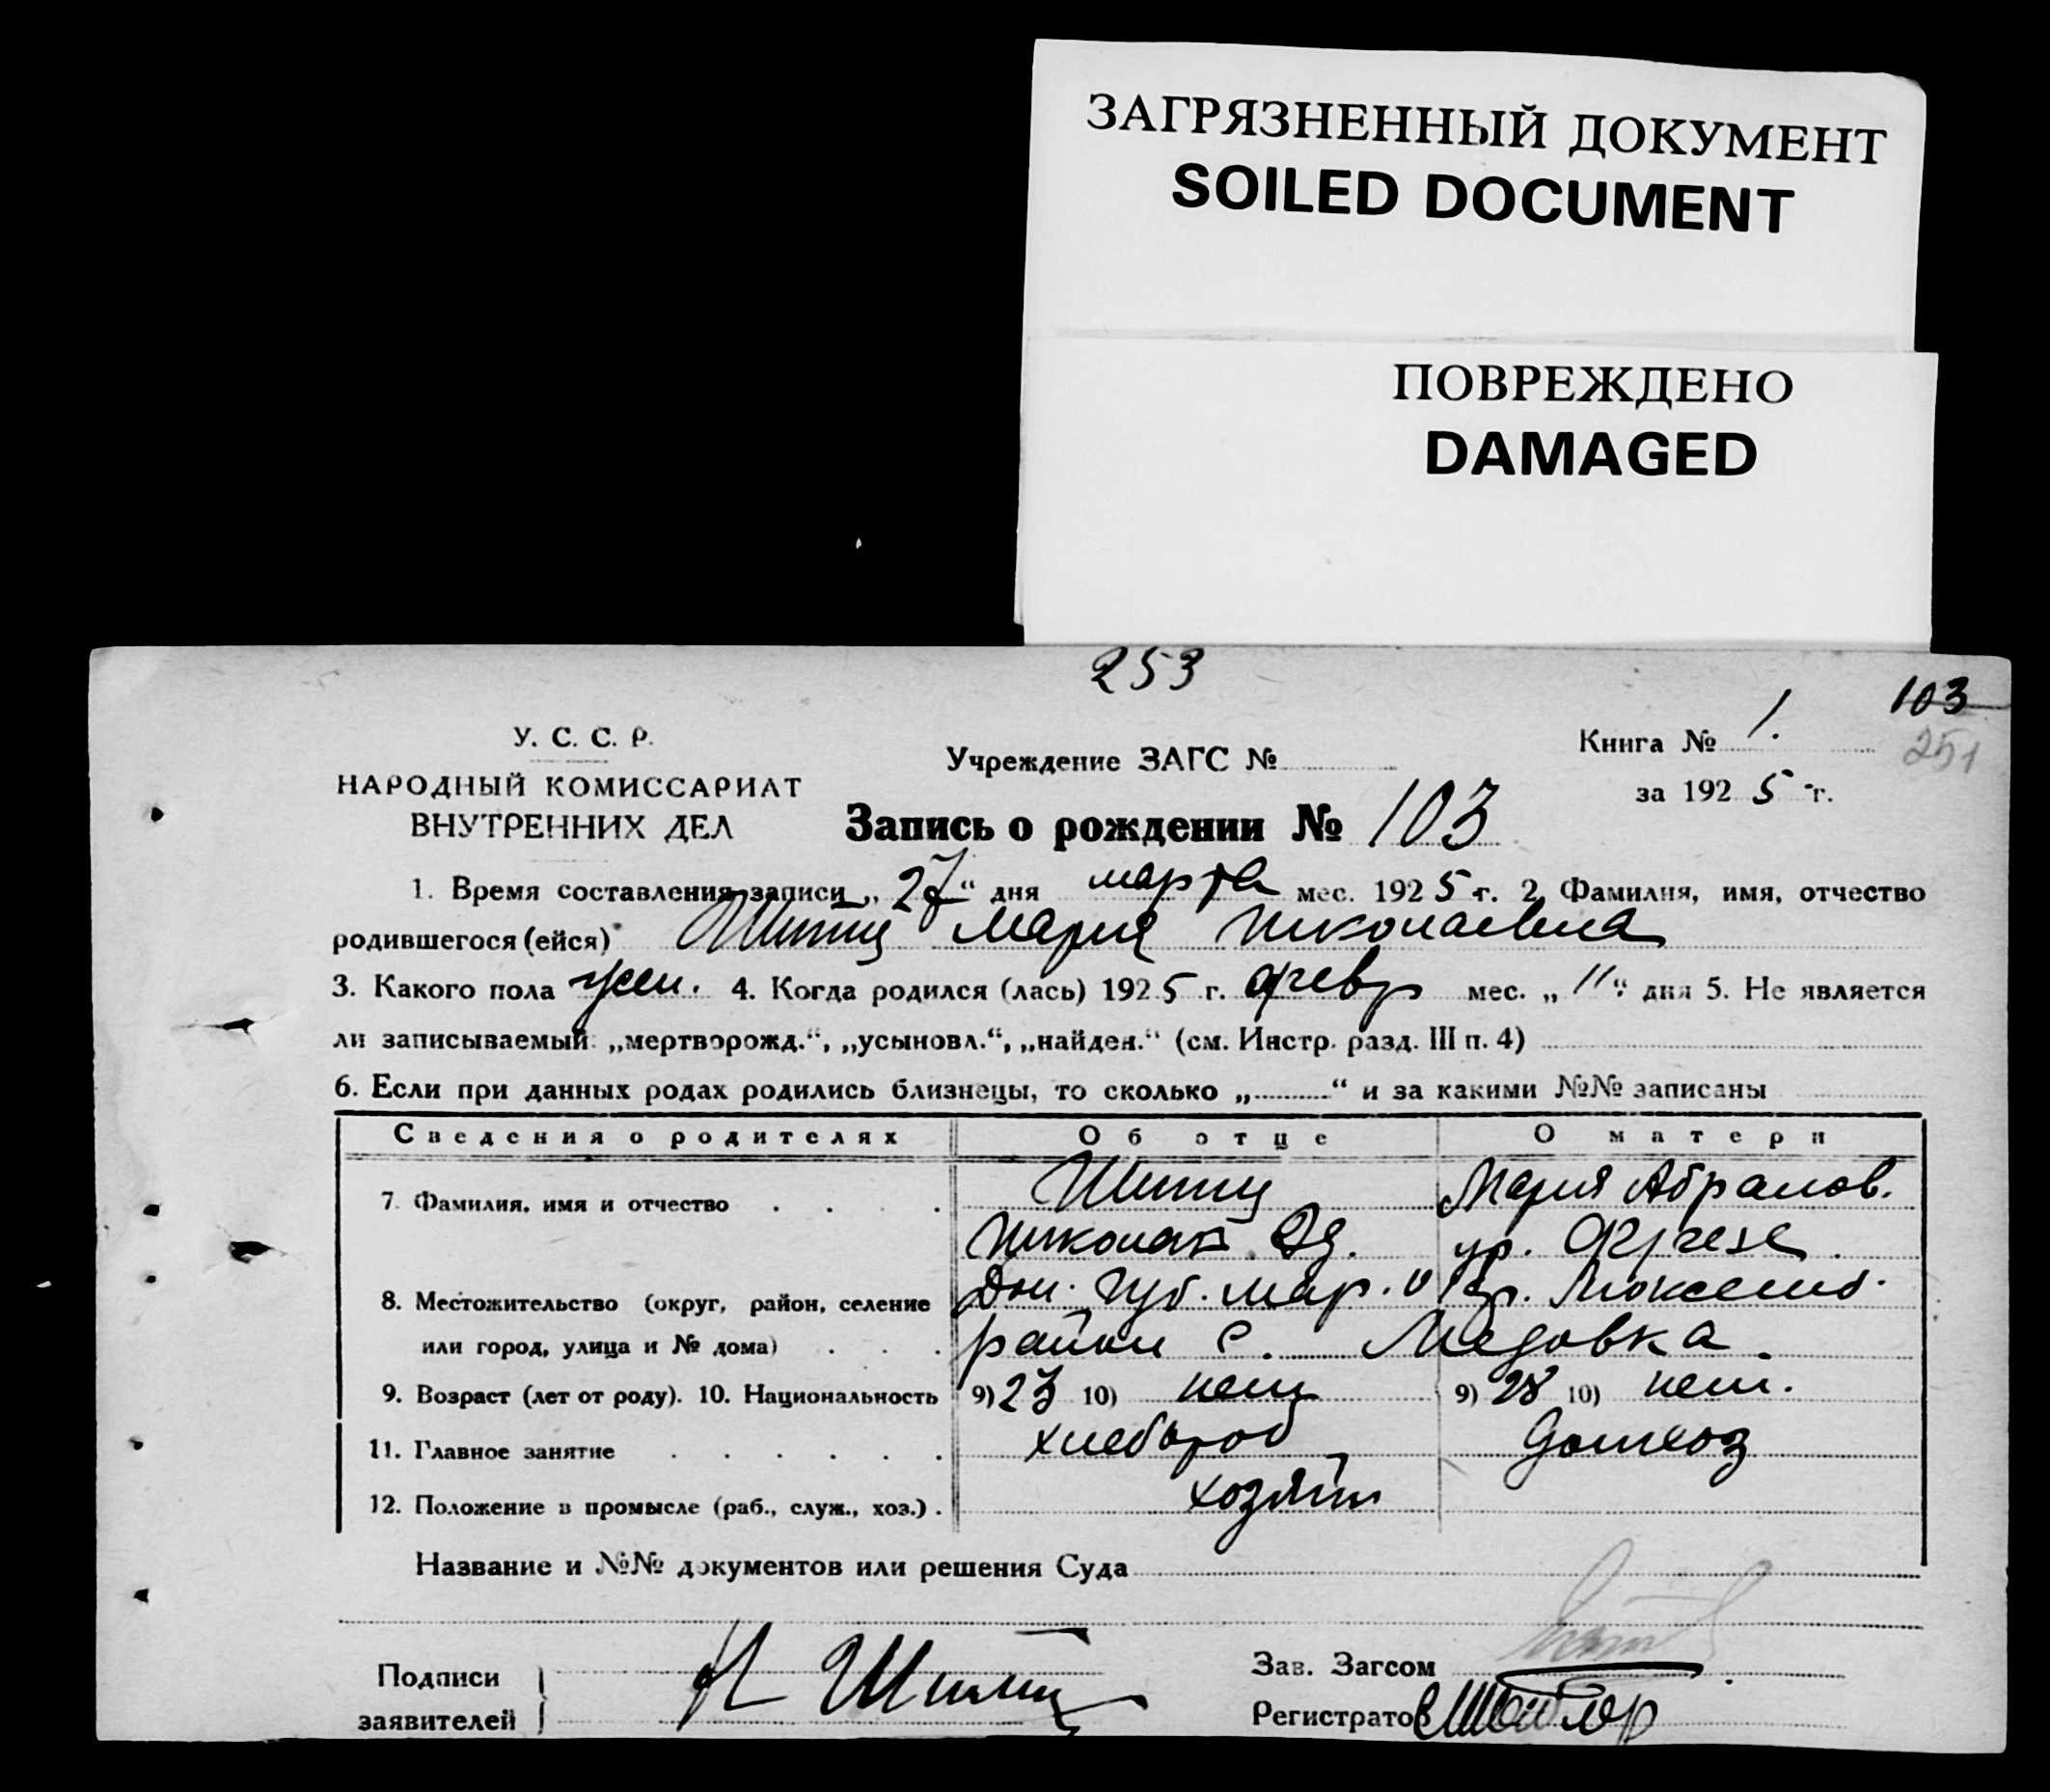 ЗАГРЯЗНЕННЫЙ ДОКУМЕНТ
SOILED DOCUMENT
ПОВРЕЖДЕНО
DAMAGED
253
103
251
У. С. С. Р.
НАРОДНЫЙ КОМИССАРИАТ
ВНУТРЕННИХ ДЕЛ
Учреждение ЗАГС №
Книга № 1.
за 1925 г.
Запись о рождении № 103
1. Время составления записи „27“ дня марта мес. 1925 г. 2. Фамилия, имя, отчество
родившегося (ейся) Шмитц Мария Николаевна
3. Какого пола жен. 4. Когда родился (лась) 1925 г. февр мес. „11“ дня 5. Не является
ли записываемый: „мертворожд.“, „усыновл.“, „найден.“ (см. Инстр. разд. III п. 4)
6. Если при данных родах родились близнецы, то сколько „ “ и за какими №№ записаны
Сведения о родителях Об отце О матери
7. Фамилия, имя и отчество Шмитц Мария Абрамов.
Николай ур. Фризе.
8. Местожительство (округ, район, селение Дон. Губ. Мар. окр.
или город, улица и № дома) район с. Медовка.
9. Возраст (лет от роду). 10. Национальность 9) 23 10) нем 9) 28 10) нем.
11. Главное занятие хлебороб домхоз
12. Положение в промысле (раб., служ., хоз.) хозяин
Название и №№ документов или решения Суда
Подписи
заявителей
Н Шмитц
Зав. Загсом
Регистратор